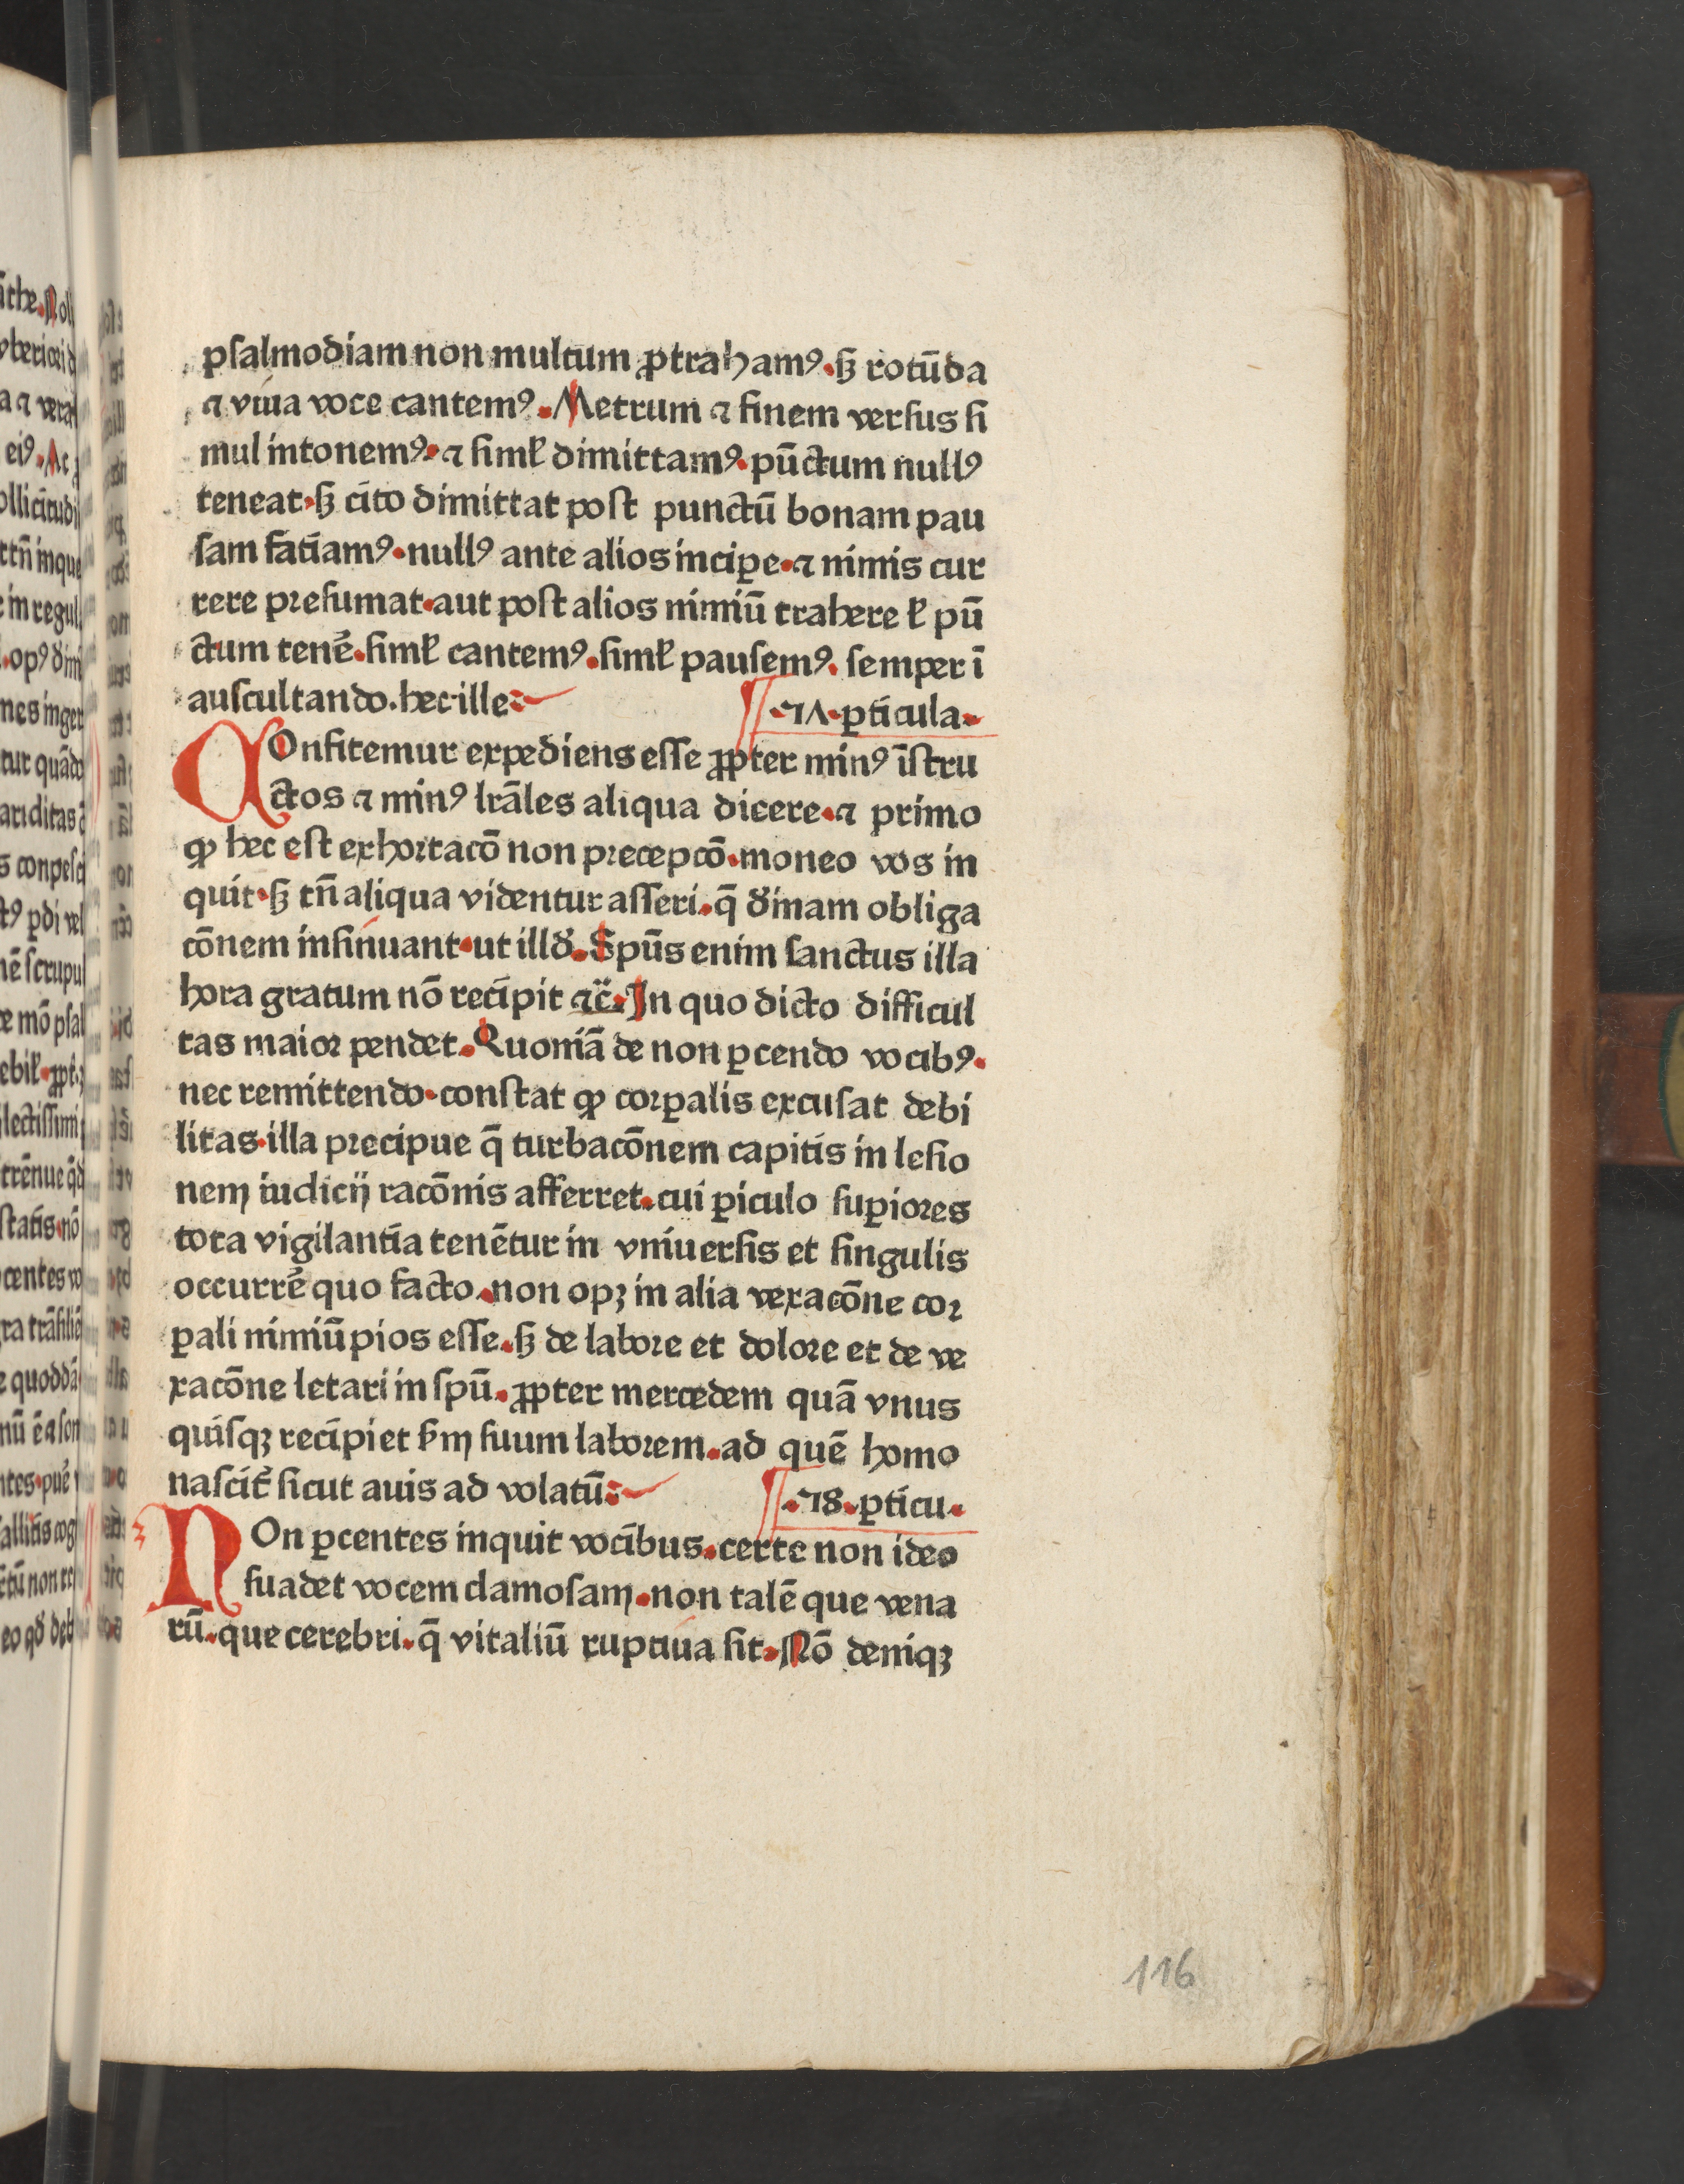 psalmodiam non multum ꝓtrahamꝰ. sꝫ rotūda
⁊ viua voce cantemꝰ. Metrum ⁊ finem versus si
mul intonemꝰ. ⁊ simꝉ dimittamꝰ. pūctum nullꝰ
teneat. sꝫ cito dimittat post punctū bonam pau
sam faciamꝰ. nullꝰ ante alios inciꝑe. ⁊ nimis cur
rere presumat. aut post alios nimiū trahere ꝉ pū
ctum tenẽ. simꝉ cantemꝰ. simꝉ pausemꝰ. semper ī
auscultando. hec ille:
.7Λ. ꝑticula.
COnfitemur expediens esse ꝓpter minꝰ īstru
ctos ⁊ minꝰ lrāles aliqua dicere. ⁊ primo
ꝙ hec est exhortacō non precepcō. moneo vos in
quit. sꝫ tn̄ aliqua videntur asseri. q̄ diuinam obliga
cōnem insinuant. ut illd̕. Spūs enim sanctus illa
hora gratum nō recipit ⁊c̄. In quo dicto difficul
tas maior pendet. Quoniā de non ꝑcendo vocibꝰ.
nec remittendo. constat ꝙ corꝑalis excusat debi
litas. illa precipue q̄ turbacōnem capitis in lesio
nem iudicij racōnis afferret. cui ꝑiculo suꝑiores
tota vigilantia tenētur in vniuersis et singulis
occurrẽ quo facto. non opꝫ in alia vexacōne cor
ꝑali nimiū pios esse. sꝫ de labore et dolore et de ve
xacōne letari in spū. ꝓpter mercedem quā vnus
quisqꝫ recipiet ẜm suum laborem. ad quē homo
nascit᷑ sicut auis ad volatū:
.78. ꝑticu.
NOn ꝑcentes inquit vocibus. certe non ideo
suadet vocem clamosam. non talē que vena
rū. que cerebri. q̄ vitaliū ruptiua sit. Nō deniqꝫ
116